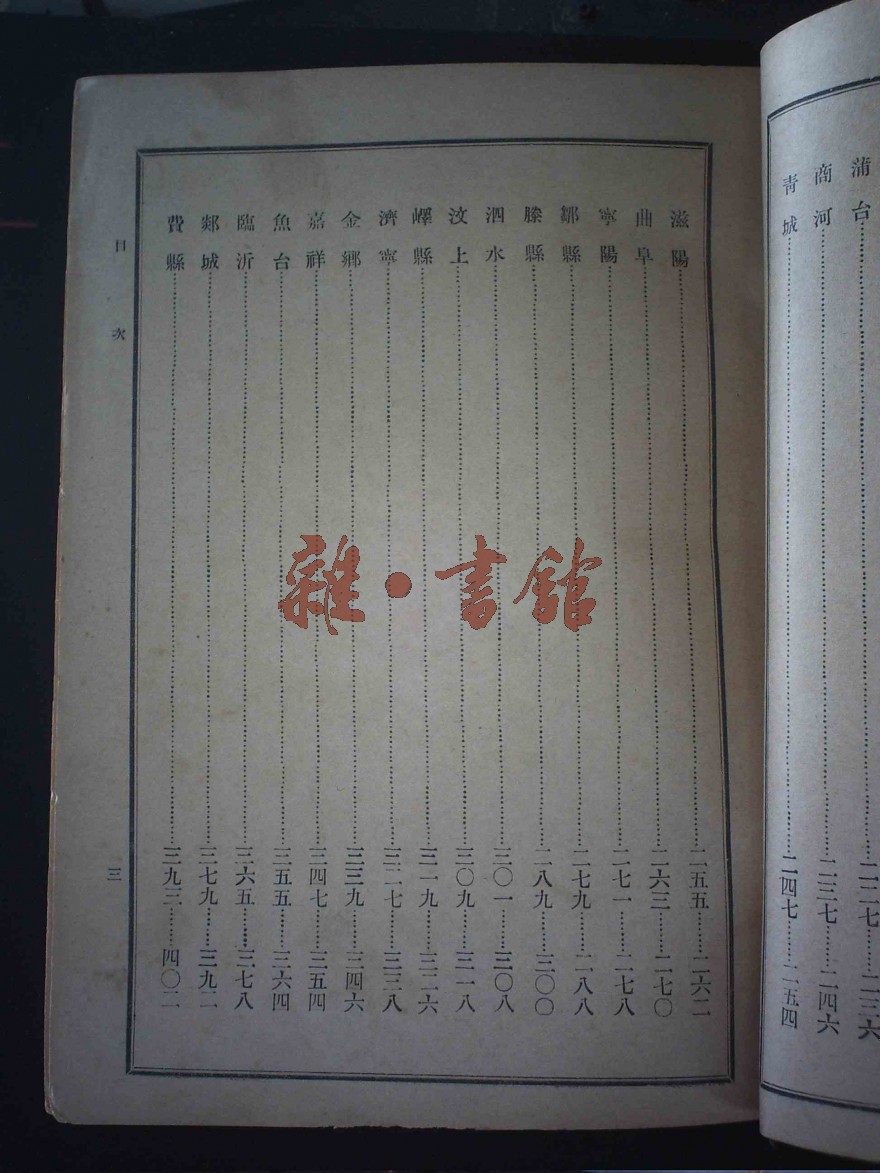 蒲台……二二七……二三六
商河……二三七……二四六
青城……二四七……二五四
滋陽……二五五……二六二
曲阜……二六三……二七〇
寧陽……二七一……二七八
鄒縣……二七九……二八八
滕縣……二八九……三〇〇
泗水……三〇一……三〇八
汶上……三〇九……三一八
嶧縣……三一九……三二六
濟寧……三二七……三三八
金鄉……三三九……三四六
嘉祥……三四七……三五四
魚台……三五五……三六四
臨沂……三六五……三七八
郯城……三七九……三九二
費縣……三九三……四〇二
目次
三
雜·書館